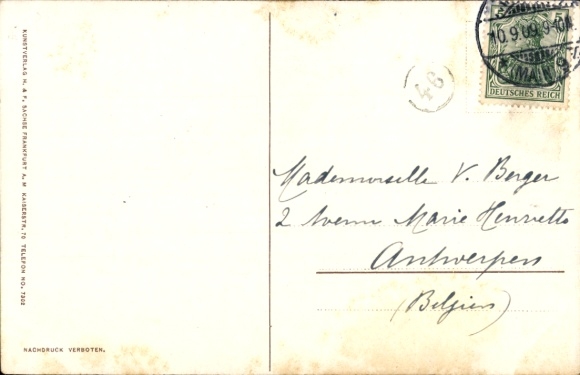 KUNSTVERLAG H. & F. SACHSE FRANKFURT A. M. KAISERSTR. 75 TELEFON NO. 7302
NACHDRUCK VERBOTEN.
10.9.09.9-10
*(MAIN)9
DEUTSCHES REICH
46
Mademoiselle V. Berger
2 Avenue Marie Henriette
Antwerpen
(Belgien)